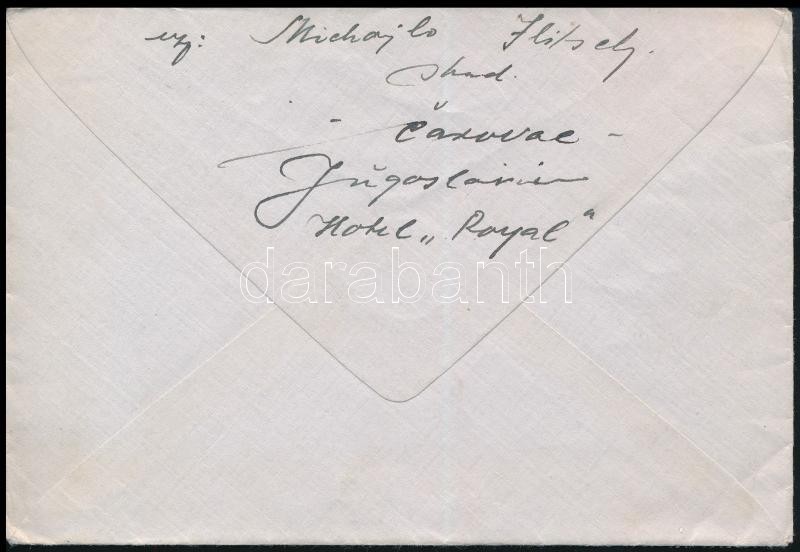 exp: Michajlo Ilitsch.
stud.
- Čakovac -
Jugoslavien
Hotel „Royal“
darabanth